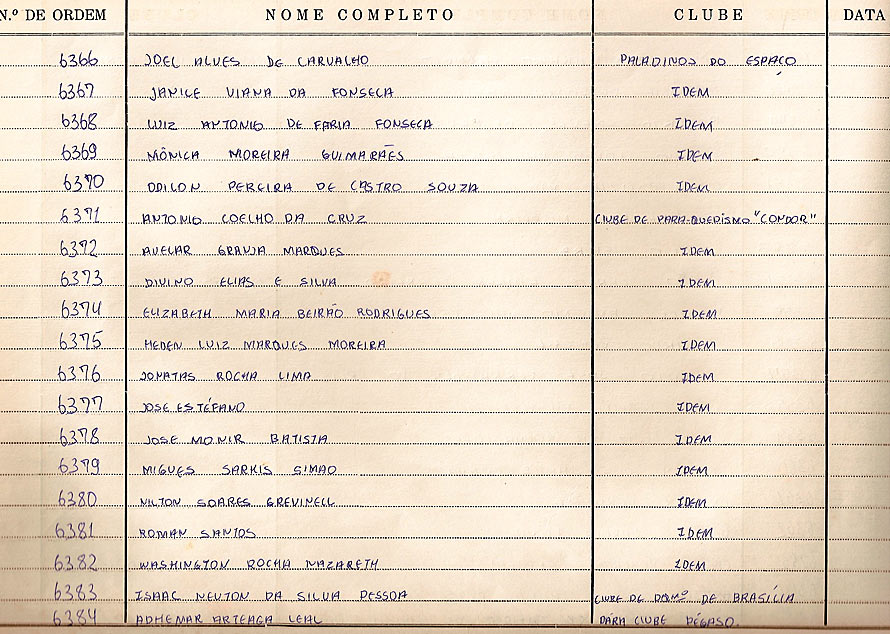 N.º DE ORDEM NOME COMPLETO CLUBE DATA
6366 JOEL ALVES DE CARVALHO PALADINOS DO ESPAÇO
6367 JANICE VIANA DA FONSECA IDEM
6368 LUIZ ANTONIO DE FARIA FONSECA IDEM
6369 MÔNICA MOREIRA GUIMARÃES IDEM
6370 ODILON PEREIRA DE CASTRO SOUZA IDEM
6371 ANTONIO COELHO DA CRUZ CLUBE DE PARA-QUEDISMO "CONDOR"
6372 AVELAR GRANJA MARQUES IDEM
6373 DIVINO ELIAS E SILVA IDEM
6374 ELIZABETH MARIA BEIRÃO RODRIGUES IDEM
6375 HEDEN LUIZ MARQUES MOREIRA IDEM
6376 JONATAS ROCHA LIMA IDEM
6377 JOSE ESTÉFANO IDEM
6378 JOSE MONIR BATISTA IDEM
6379 MIGUES SARKIS SIMÃO IDEM
6380 NILTON SOARES GREVINELL IDEM
6381 ROMAN SANTOS IDEM
6382 WASHINGTON ROCHA NAZARETH IDEM
6383 ISAAC NEWTON DA SILVA PESSOA CLUBE DE PQDMº DE BRASÍLIA
6384 ADHEMAR ARTEAGA LEAL PÁRA CLUBE PÉGASO